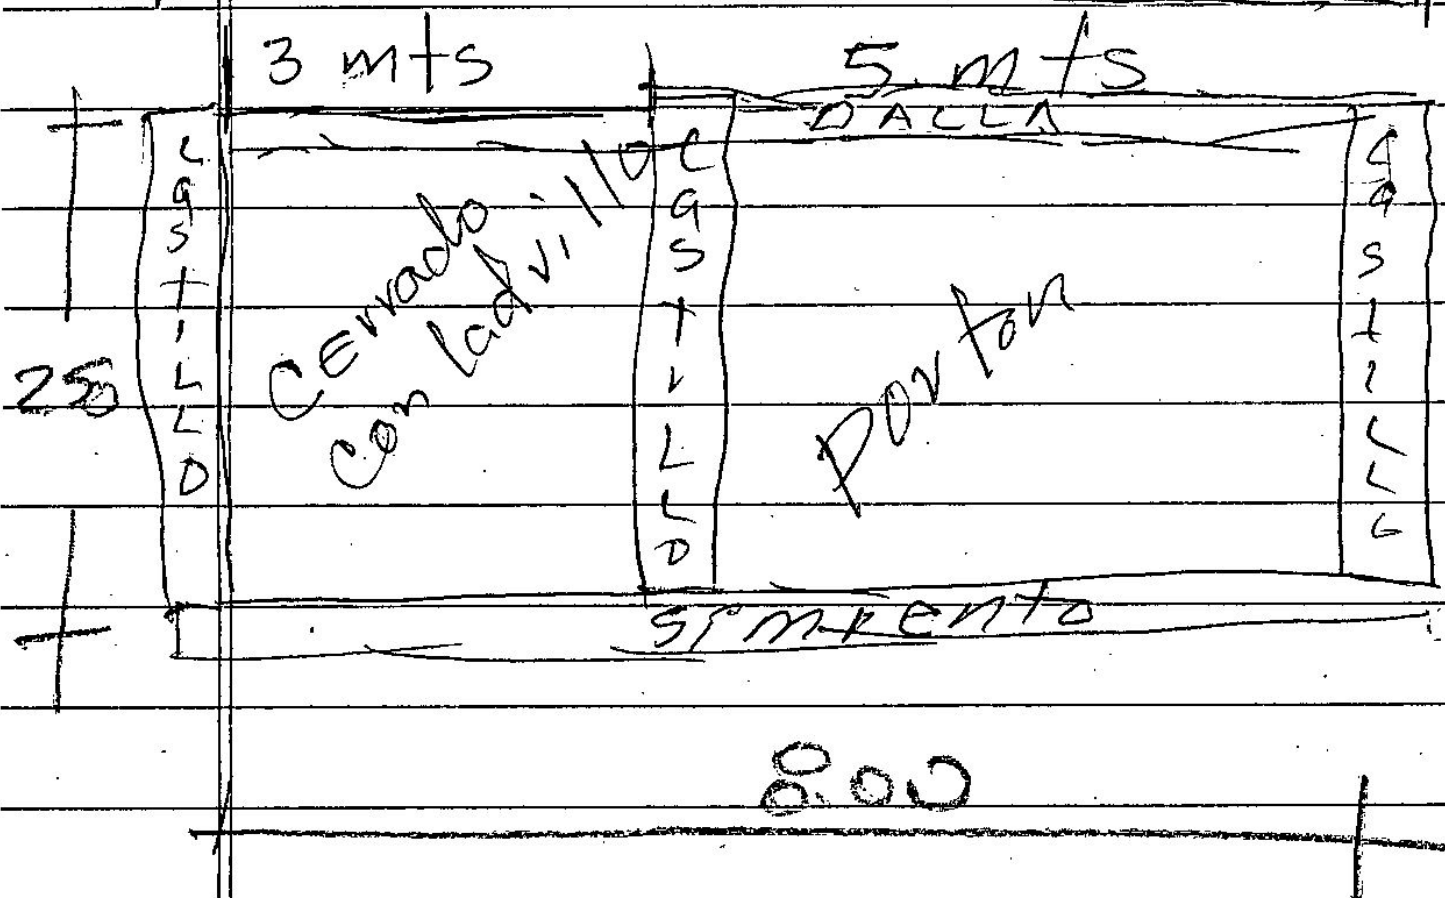 3 mts
5 mts
DALLA
CASTILLO
Cerrado
con ladrillo
CASTILLO
Porton
CASTILLO
250
Simiento
8.00